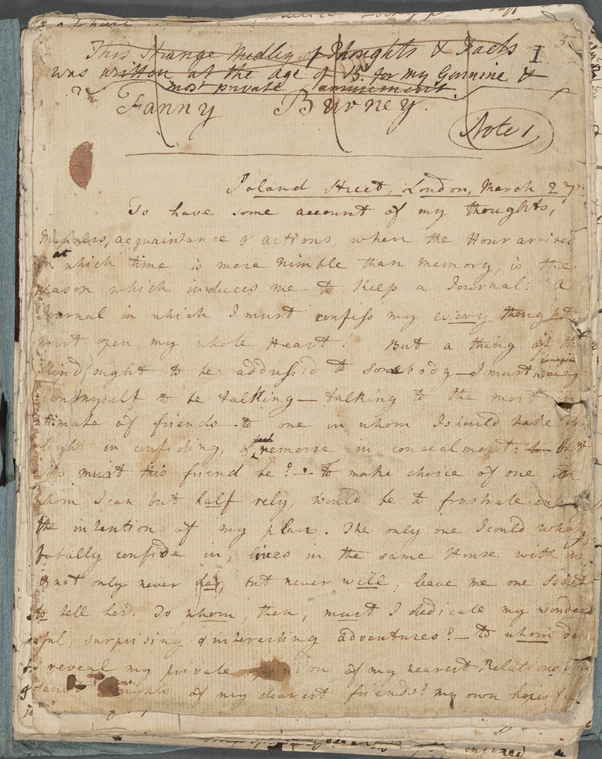 This strange medley of Thoughts & Facts
was written at the age of 15. for my Genuine &
most private amusement.
1
Fanny Burney.
Note 1,
Poland Street, London, March 27
To have some account of my thoughts,
manners, acquaintance & actions, when the Hour arrives
at which time is more nimble than memory, is the
reason which induces me to keep a Journal: a
Journal in which I must confess my every thought,
must open my whole Heart! But a thing of the
kind ought to be addressed to somebody — I must
myself to be talking — talking to the most in
timate of friends — to one in whom I should take de
light in confiding, & feel remorse in concealment: but
who must this friend be? — to make choice of one in
whom I can but half rely, would be to frustrate
the intention of my plan. The only one I could wholly
totally confide in, lives in the same House with me
& not only never has, but never will, leave me one secret
to tell her. To whom, then, must I dedicate my wonder
ful, surprising & interesting adventures? — to whom dare
I reveal my private opinion of my nearest relations?
of my dearest friends? my own hopes